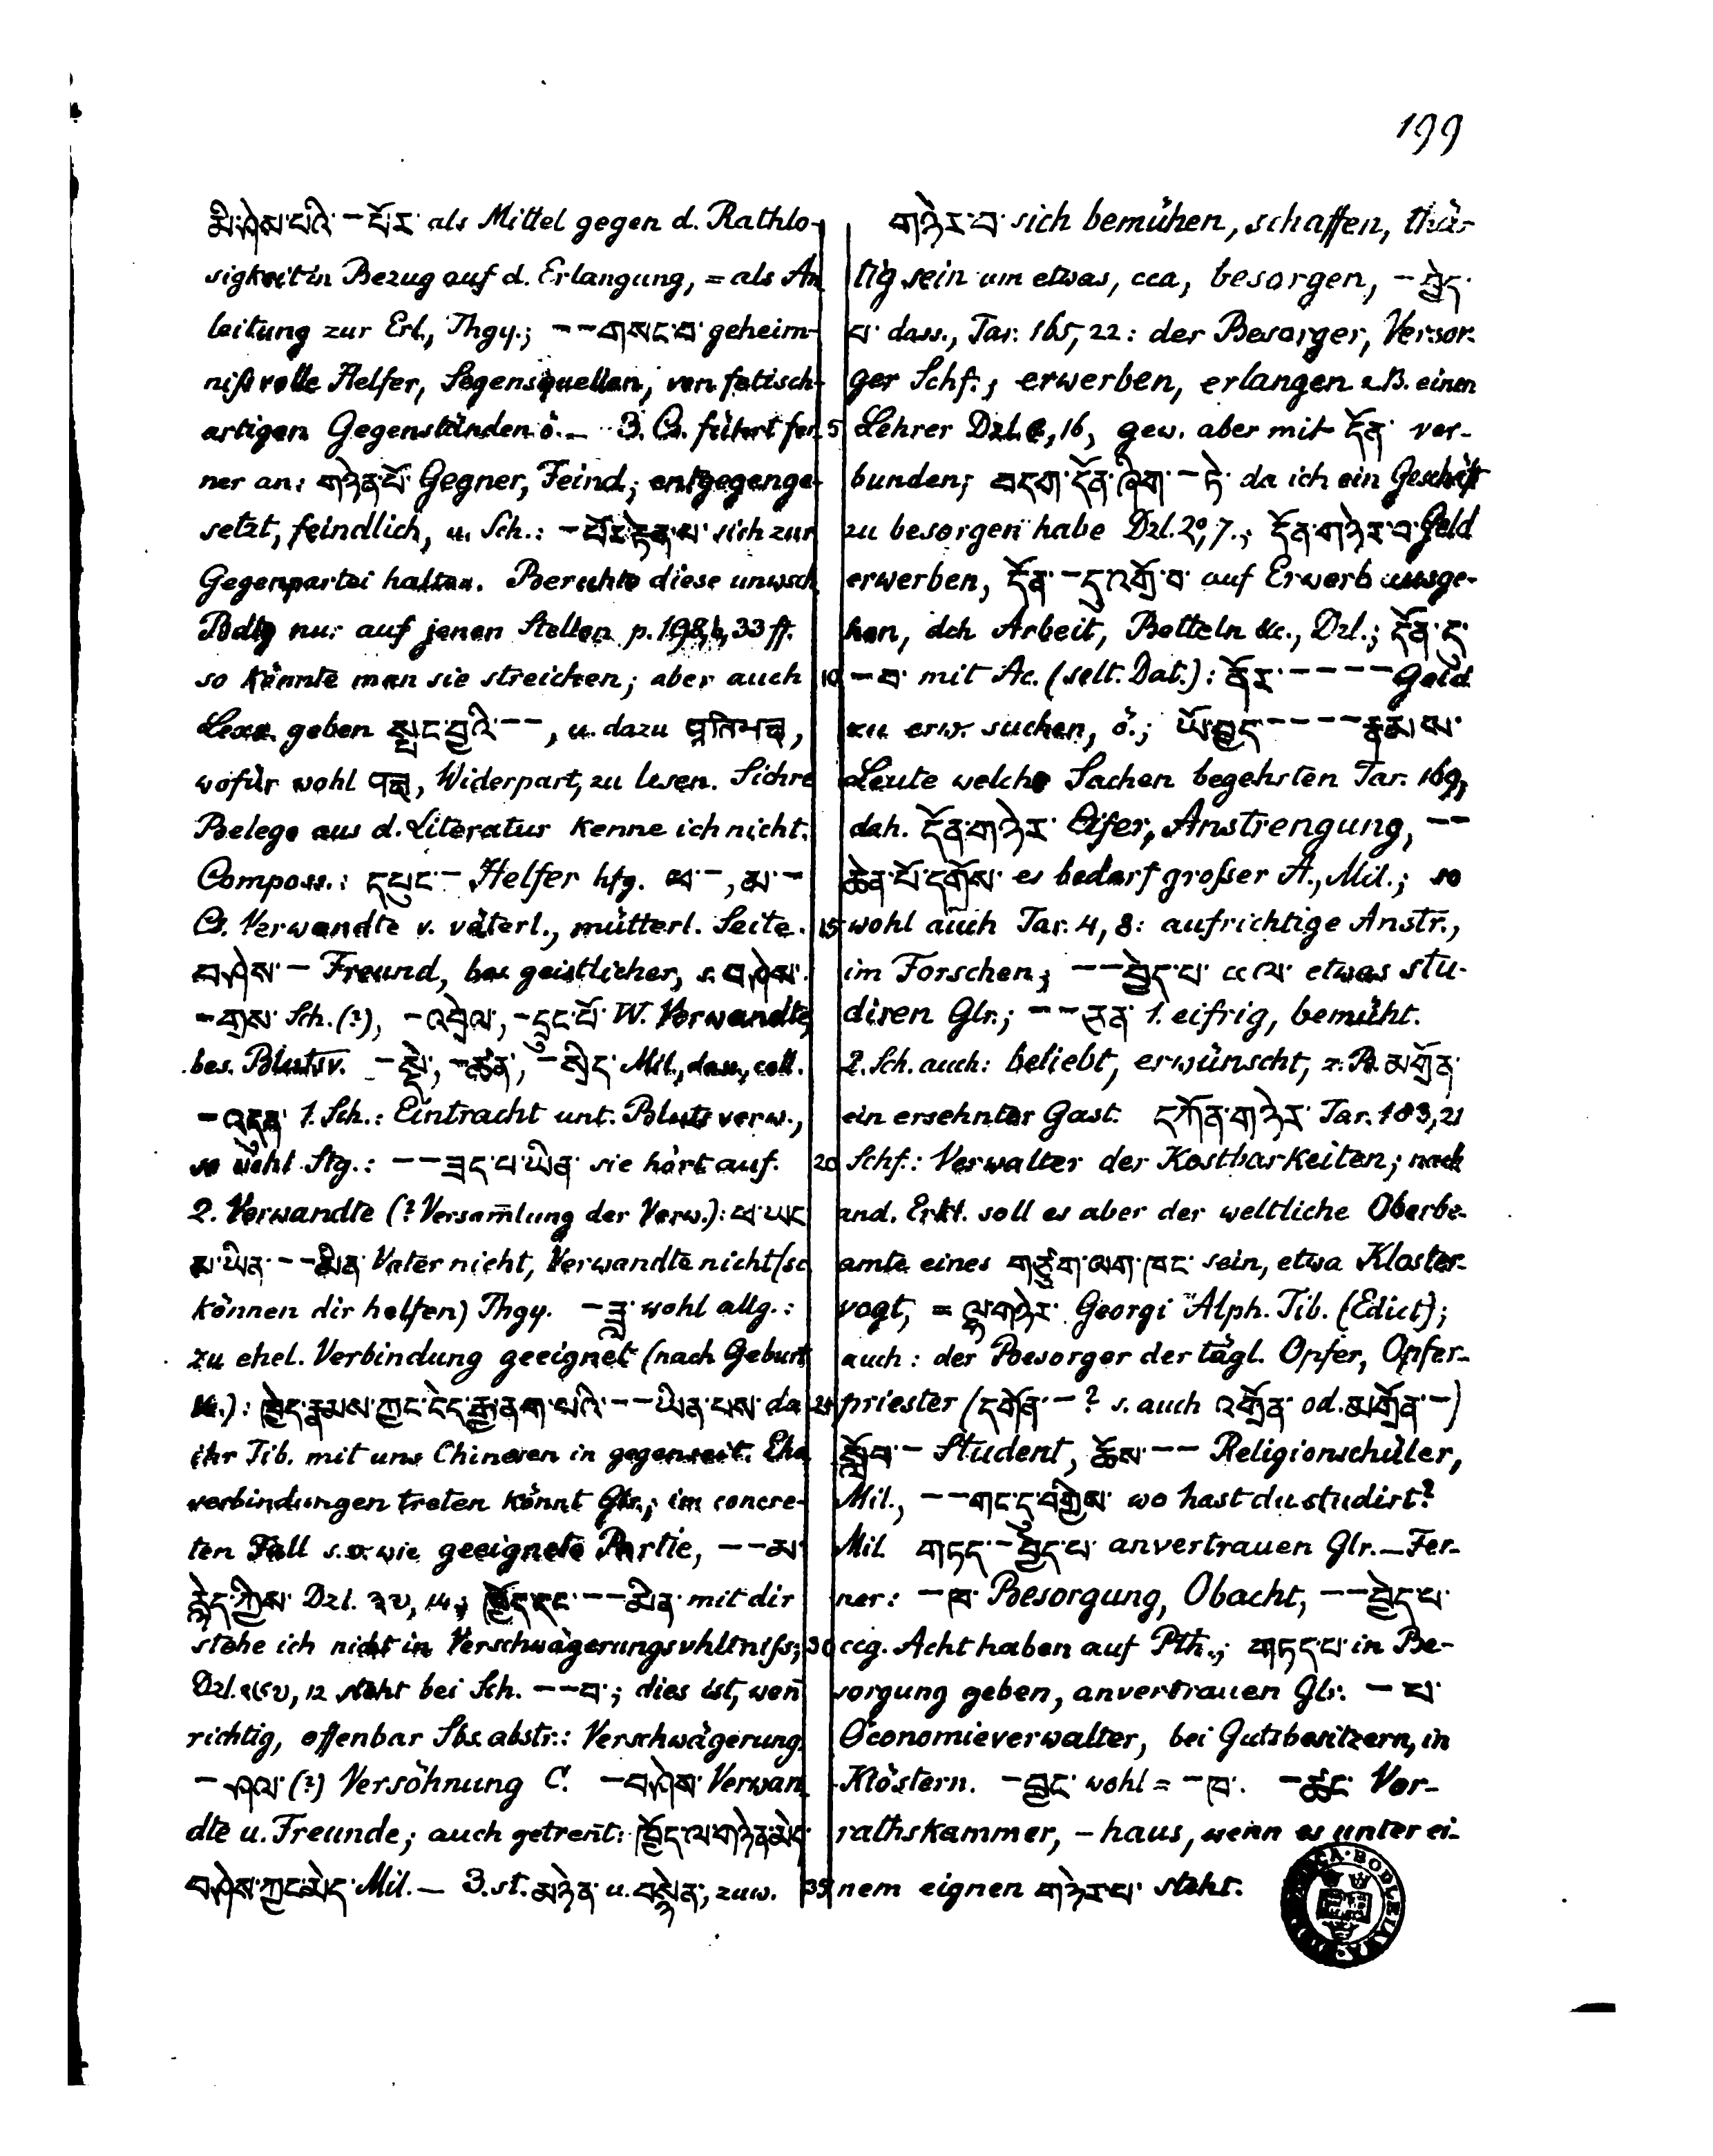 199
མི་ཤེས་པའི་ – པོར་ als Mittel gegen d. Rathlo-
sigkeit in Bezug auf d. Erlangung, = als An
leitung zur Erl., Thgy.; – – གསང་བ་ geheim-
nißvolle Helfer, Segensquellen, von fetisch-
artigen Gegenständen ö. – 3. Cs. führt fer-
ner an: གཉེན་པོ་ Gegner, Feind; entgegenge-
setzt, feindlich, u. Sch.: – པོར་རྟེན་པ་ sich zur
Gegenpartei halten. Beruhte diese unwsch
Bdtg nur auf jenen Stellen p. 198, b, 33 ff.
so könnte man sie streichen; aber auch
Lexx. geben སྤང་བྱའི་ – –, u. dazu
wofür wohl , Widerpart, zu lesen. Sichre
Belege aus d. Literatur kenne ich nicht.
Composs.: དཔུང་ – Helfer hfg. ཕ་ –, མ་ –
Cs. Verwandte v. väterl., mütterl. Seite.
བཤེས་ – Freund, bes. geistlicher, s. བཤེས་.
– གྲས་ Sch. (?), – འབྲེལ་, – དྲུང་པོ་ W. Verwandte
bes. Blutsv. – སྡེ་, – ཚན་, – སྲིད་ Mil., dass., coll.
– འདུན་ 1. Sch.: Eintracht unt. Blutsverw.,
so wohl Stg.: – – ཟད་པ་ཡིན་ sie hört auf.
2. Verwandte (? Versam̄lung der Verw.): ཕ་ཡང
མ་ཡིན་ – – མིན་ Vater nicht, Verwandte nicht (sc
können dir helfen) Thgy. – ཟླ་ wohl allg.:
zu ehel. Verbindung geeignet (nach Geburt
&c.): ཁྱེད་རྣམས་ཀྱང་ངེད་རྒྱ་ནག་པའི་ – – ཡིན་པས་ da
ihr Tib. mit uns Chinesen in gegenseit. Ehe
verbindungen treten könnt Glr.; im concre-
ten Fall s.v. wie geeignete Partie, – – མ་
རྙེད་ཀྱིས་ Dzl. ༢༠, 14; ཁྱོད་དང་ – – མིན་ mit dir
stehe ich nicht in Verschwägerungsvhltniſs;
Dzl. , 12 steht bei Sch. – – བ་; dies ist, wen̄
richtig, offenbar Sbs. abstr.: Verschwägerung.
– ཤལ་ (?) Versöhnung C. – བཤེས་ Verwan
dte u. Freunde; auch getren̄t: ཁྱོད་ལ་གཉེན་མེད་
བཤེས་ཀྱང་མེད་ Mil. – 3. st. མཉེན་ u. བསྙེན་, zuw.
གཉེར་བ་ sich bemühen, schaffen, thä-
tig sein um etwas, cca, besorgen, – བྱེད་
པ་ dass., Tar. 165, 22: der Besorger, Versor-
ger Schf.; erwerben, erlangen z.B. einen
5 Lehrer Dzl. , 16, gew. aber mit དོན་ ver-
bunden; བདག་དོན་ཞིག་ – ཏེ་ da ich ein Geschäft
zu besorgen habe Dzl. 20, 7.; དོན་གཉེར་བ་ Geld
erwerben, དོན་ – དུ་འགྲོ་བ་ auf Erwerb ausge-
hen, dch Arbeit, Betteln &c., Dzl.; དོན་དུ་
10 – བ་ mit Ac. (selt. Dat.): ནོར་ – – – – Geld
zu erw. suchen, ö.; ཡོ་བྱད་ – – – – རྣམས་
Leute welche Sachen begehrten Tar. 169,
dah. དོན་གཉེར་ Eifer, Anstrengung, – –
ཆེན་པོ་དགོས་ es bedarf großer A., Mil.; so
15 wohl auch Tar. 4, 8: aufrichtige Anstr.,
im Forschen; – – བྱེད་པ་ cc ལ་ etwas stu-
diren Glr.; – – ཅན་ 1. eifrig, bemüht.
2. Sch. auch: beliebt, erwünscht, z.B. མགྲོན་
ein ersehnter Gast. དཀོན་གཉེར་ Tar. 183, 21
20 Schf.: Verwalter der Kostbarkeiten; nach
and. Erkl. soll es aber der weltliche Oberbe-
amte eines གཙུག་ལག་ཁང་ sein, etwa Kloster-
vogt, = ལྷ་གཉེར་ Georgi Alph. Tib. (Edict);
auch: der Besorger der tägl. Opfer, Opfer-
25 priester (དགོན་ – ? s. auch འགྲོན་ od. མགྲོན་ –)
སློབ་ – Student, ཆོས་ – – Religionschüler,
Mil., – – གང་དུ་བགྱིས་ wo hast du studirt?
Mil. གཏད་ – བྱེད་པ་ anvertrauen Glr. – Fer-
ner: – ཁ་ Besorgung, Obacht, – – བྱེད་པ་
30 ccg. Acht haben auf Pth.; གཏད་པ་ in Be-
sorgung geben, anvertrauen Glr. – པ་
Öconomieverwalter, bei Gutsbesitzern, in
Klöstern. – བྱང་ wohl = – ཁ་. – ཚང་ Vor-
rathskammer, – haus, wenn es unter ei-
35 nem eignen གཉེར་པ་ steht.